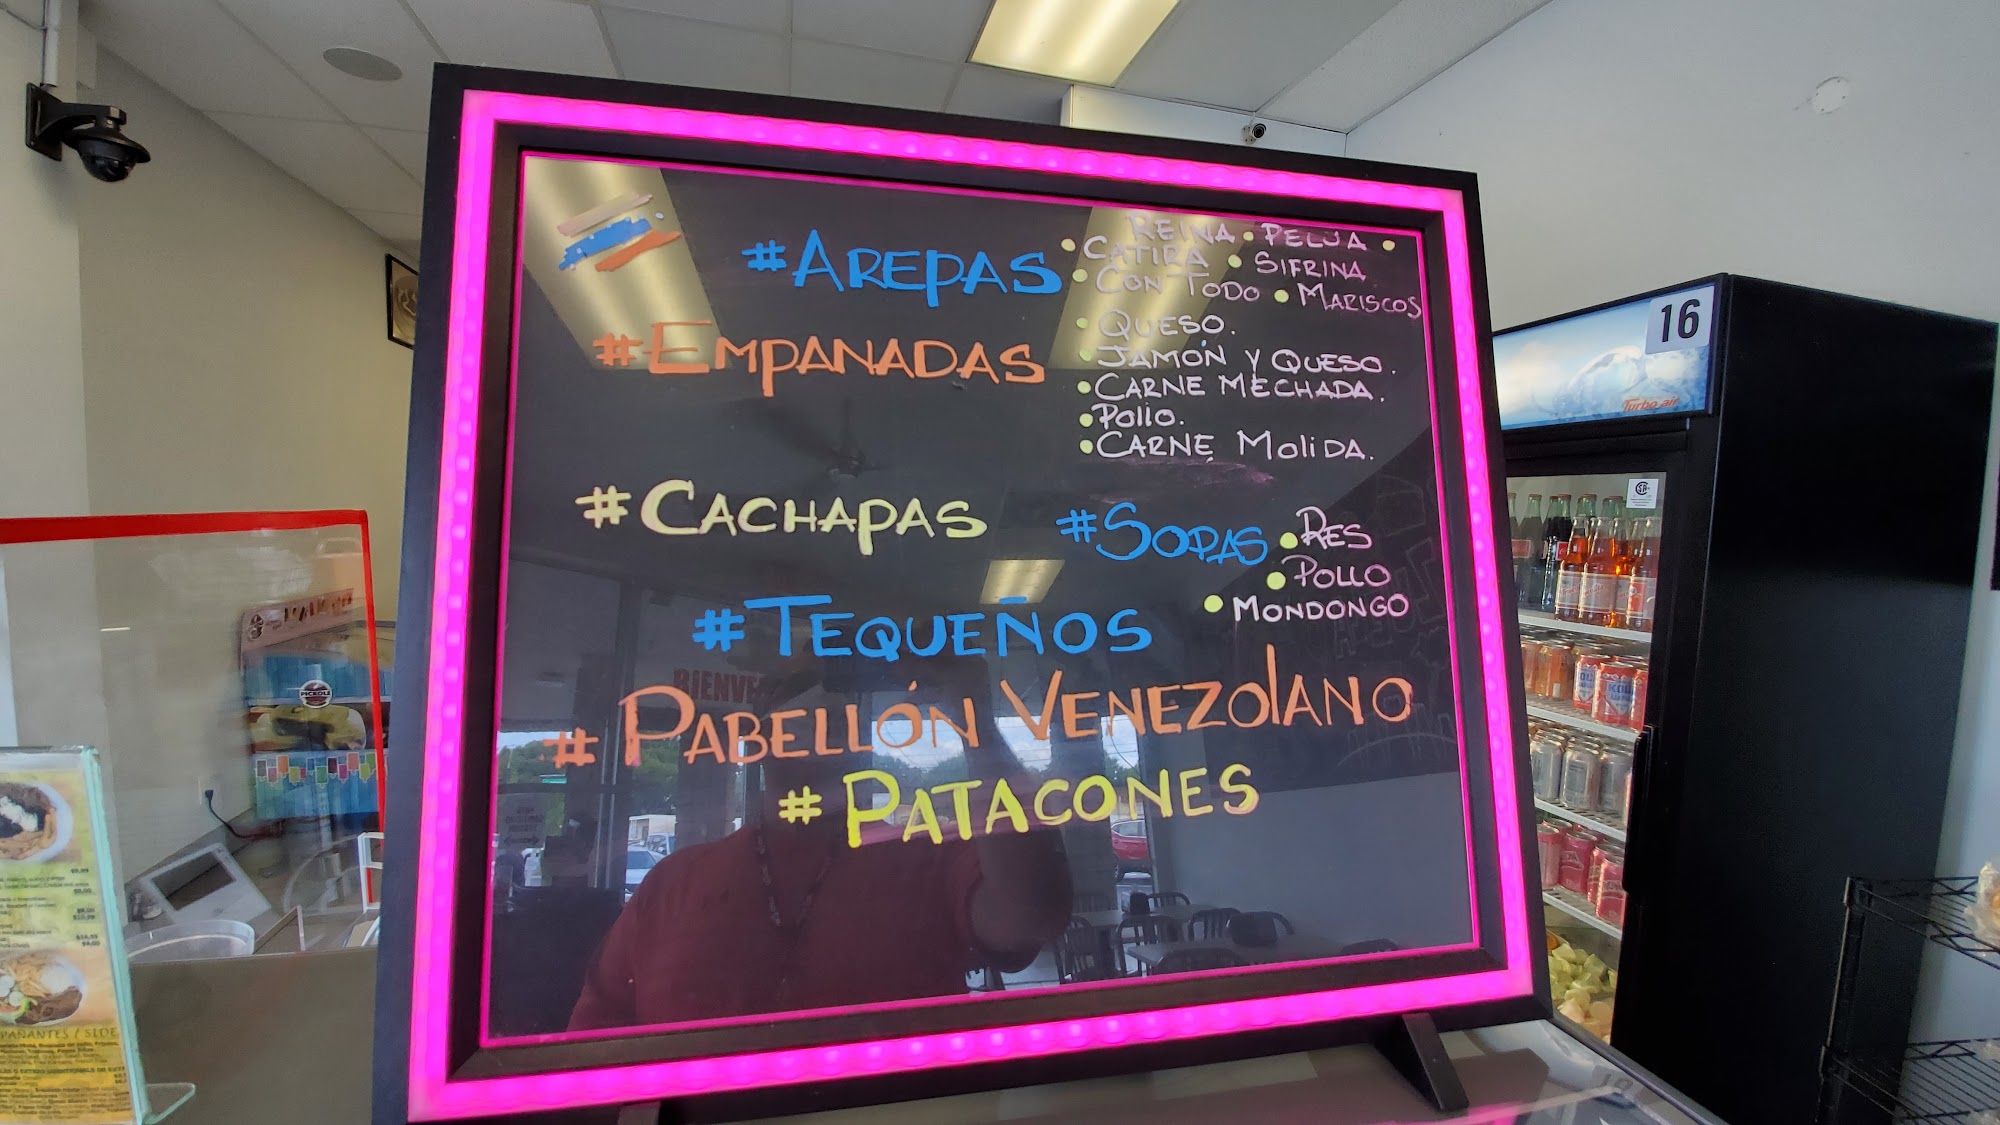 • REINA • PELUA •
#AREPAS CATIRA • SIFRINA
• CON TODO • MARISCOS
#EMPANADAS
• QUESO.
• JAMÓN Y QUESO.
• CARNE MECHADA.
• Pollo.
• CARNE MoliDA.
#CACHAPAS
#SOPAS • RES
• POLLO
• MONDONGO
#TEQUEÑOS
#PABELLÓN VENEZOlANO
#PATACONES
BIENVE
16
Turbo air
PICKOLE
$9.99